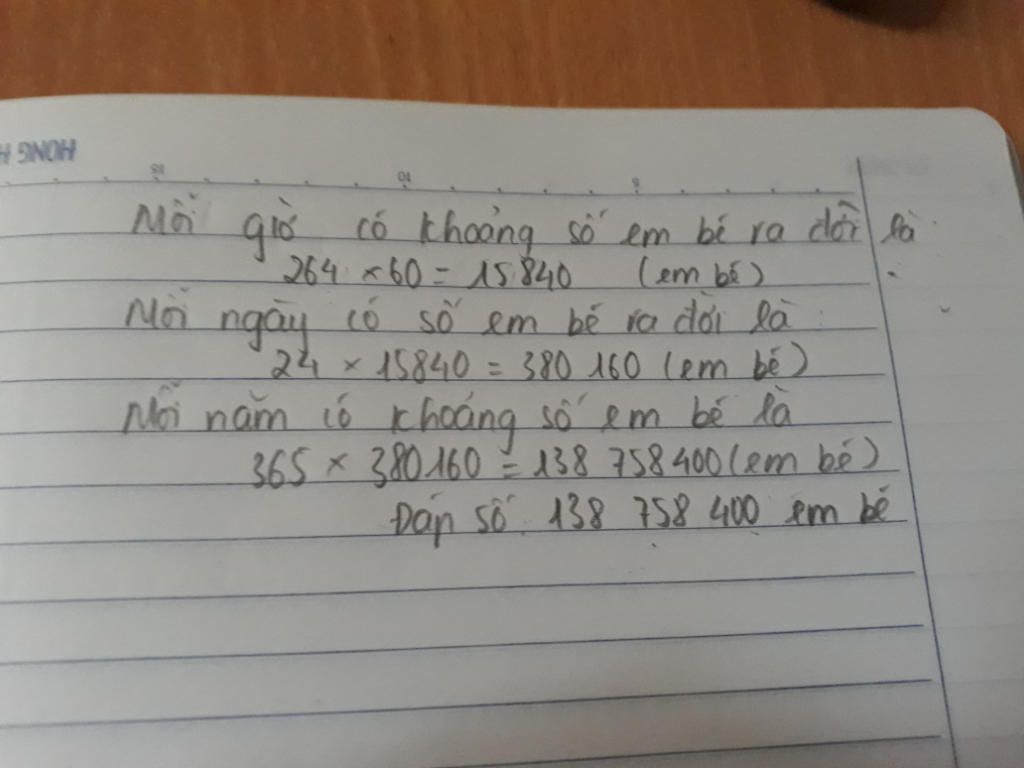 HONG H
15 10 5
Mỗi giờ có khoảng số em bé ra đời là
264 × 60 = 15 840 (em bé)
Mỗi ngày có số em bé ra đời là :
24 × 15840 = 380 160 (em bé)
Mỗi năm có khoảng số em bé là
365 × 380160 = 138 758 400 (em bé)
Đáp số : 138 758 400 em bé